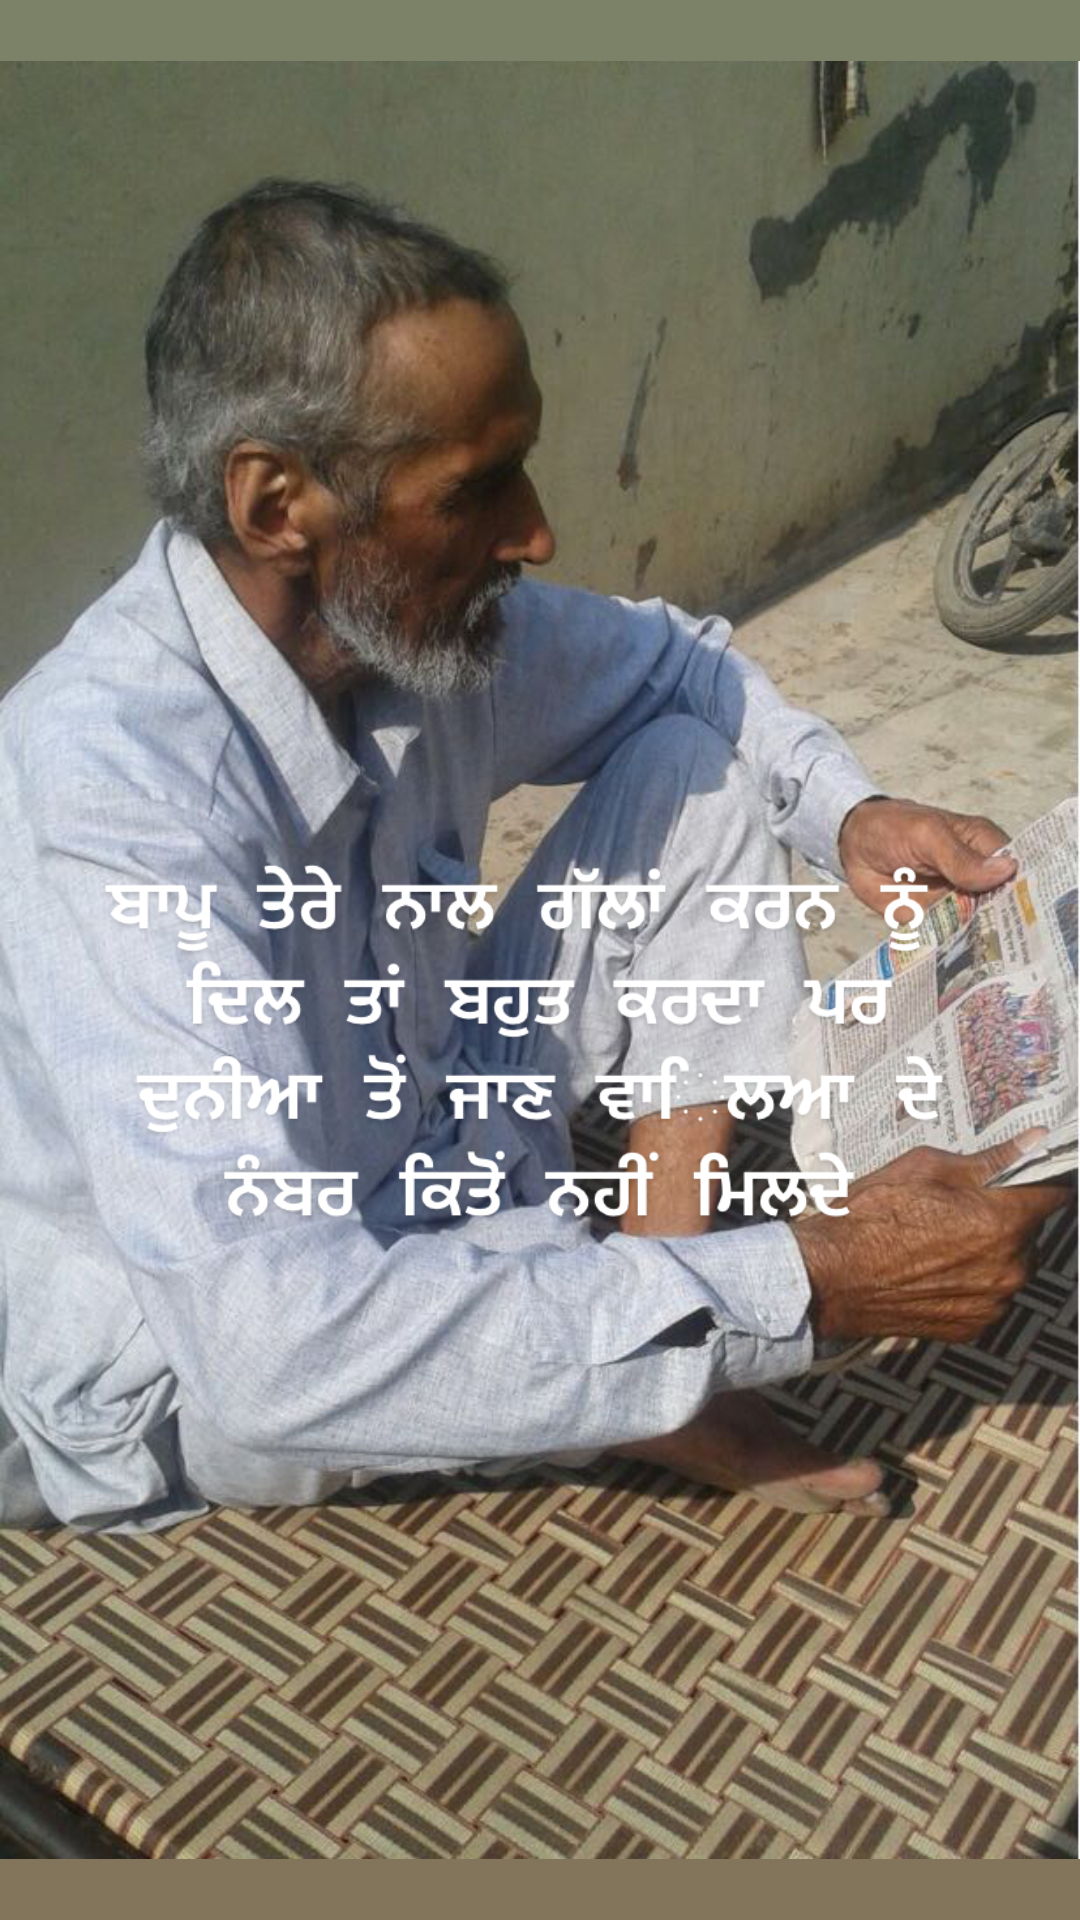 ਬਾਪੂ ਤੇਰੇ ਨਾਲ ਗੱਲਾਂ ਕਰਨ ਨੂੰ
ਦਿਲ ਤਾਂ ਬਹੁਤ ਕਰਦਾ ਪਰ
ਦੁਨੀਆ ਤੋਂ ਜਾਣ ਵਾਿਲਆ ਦੇ
ਨੰਬਰ ਕਿਤੋਂ ਨਹੀਂ ਮਿਲਦੇ